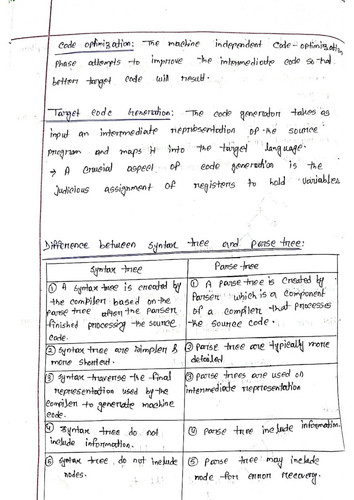 Code optimization: The machine independent Code-optimization
phase attempts to improve the intermediate code so that
better target code will result.
Target code Generation: The code generator takes as
input an intermediate representation of the source
program and maps it into the target language.
→ A crucial aspect of code generation is the
judicious assignment of registers to hold variables
Difference between syntax tree and parse tree:
Syntax tree
① A syntax tree is created by
the compiler based on the
parse tree after the parser
finished processing the source
code.
② Syntax tree are simpler &
more shorted.
③ Syntax-traverse the final
representation used by the
compiler to generate machine
code.
④ Syntax tree do not
include information.
⑤ syntax tree do not include
nodes.
Parse tree
① A parse tree is created by
Parser which is a component
of a compiler that processes
the source code.
② Parse tree are typically more
detailed
③ parse trees are used on
intermediate representation
④ parse tree include information.
⑤ parse tree may include
node for error recovery.